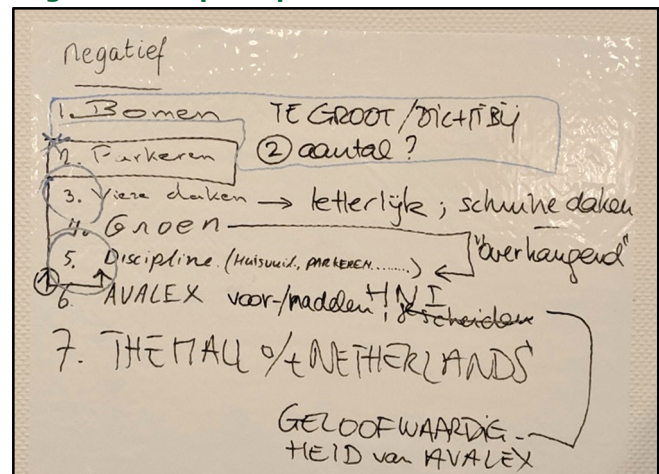 negatief
1. Bomen TE GROOT / DICHTBIJ
2. Parkeren ② aantal ?
3. Vieze daken → letterlijk ; schuine daken
4. Groen "overhangend"
5. Discipline (Huisvuil, PARKEREN........)
①
6. AVALEX voor-/nadelen ; scheiden
7. THE MALL o/t NETHERLANDS
GELOOFWAARDIG-
HEID van AVALEX